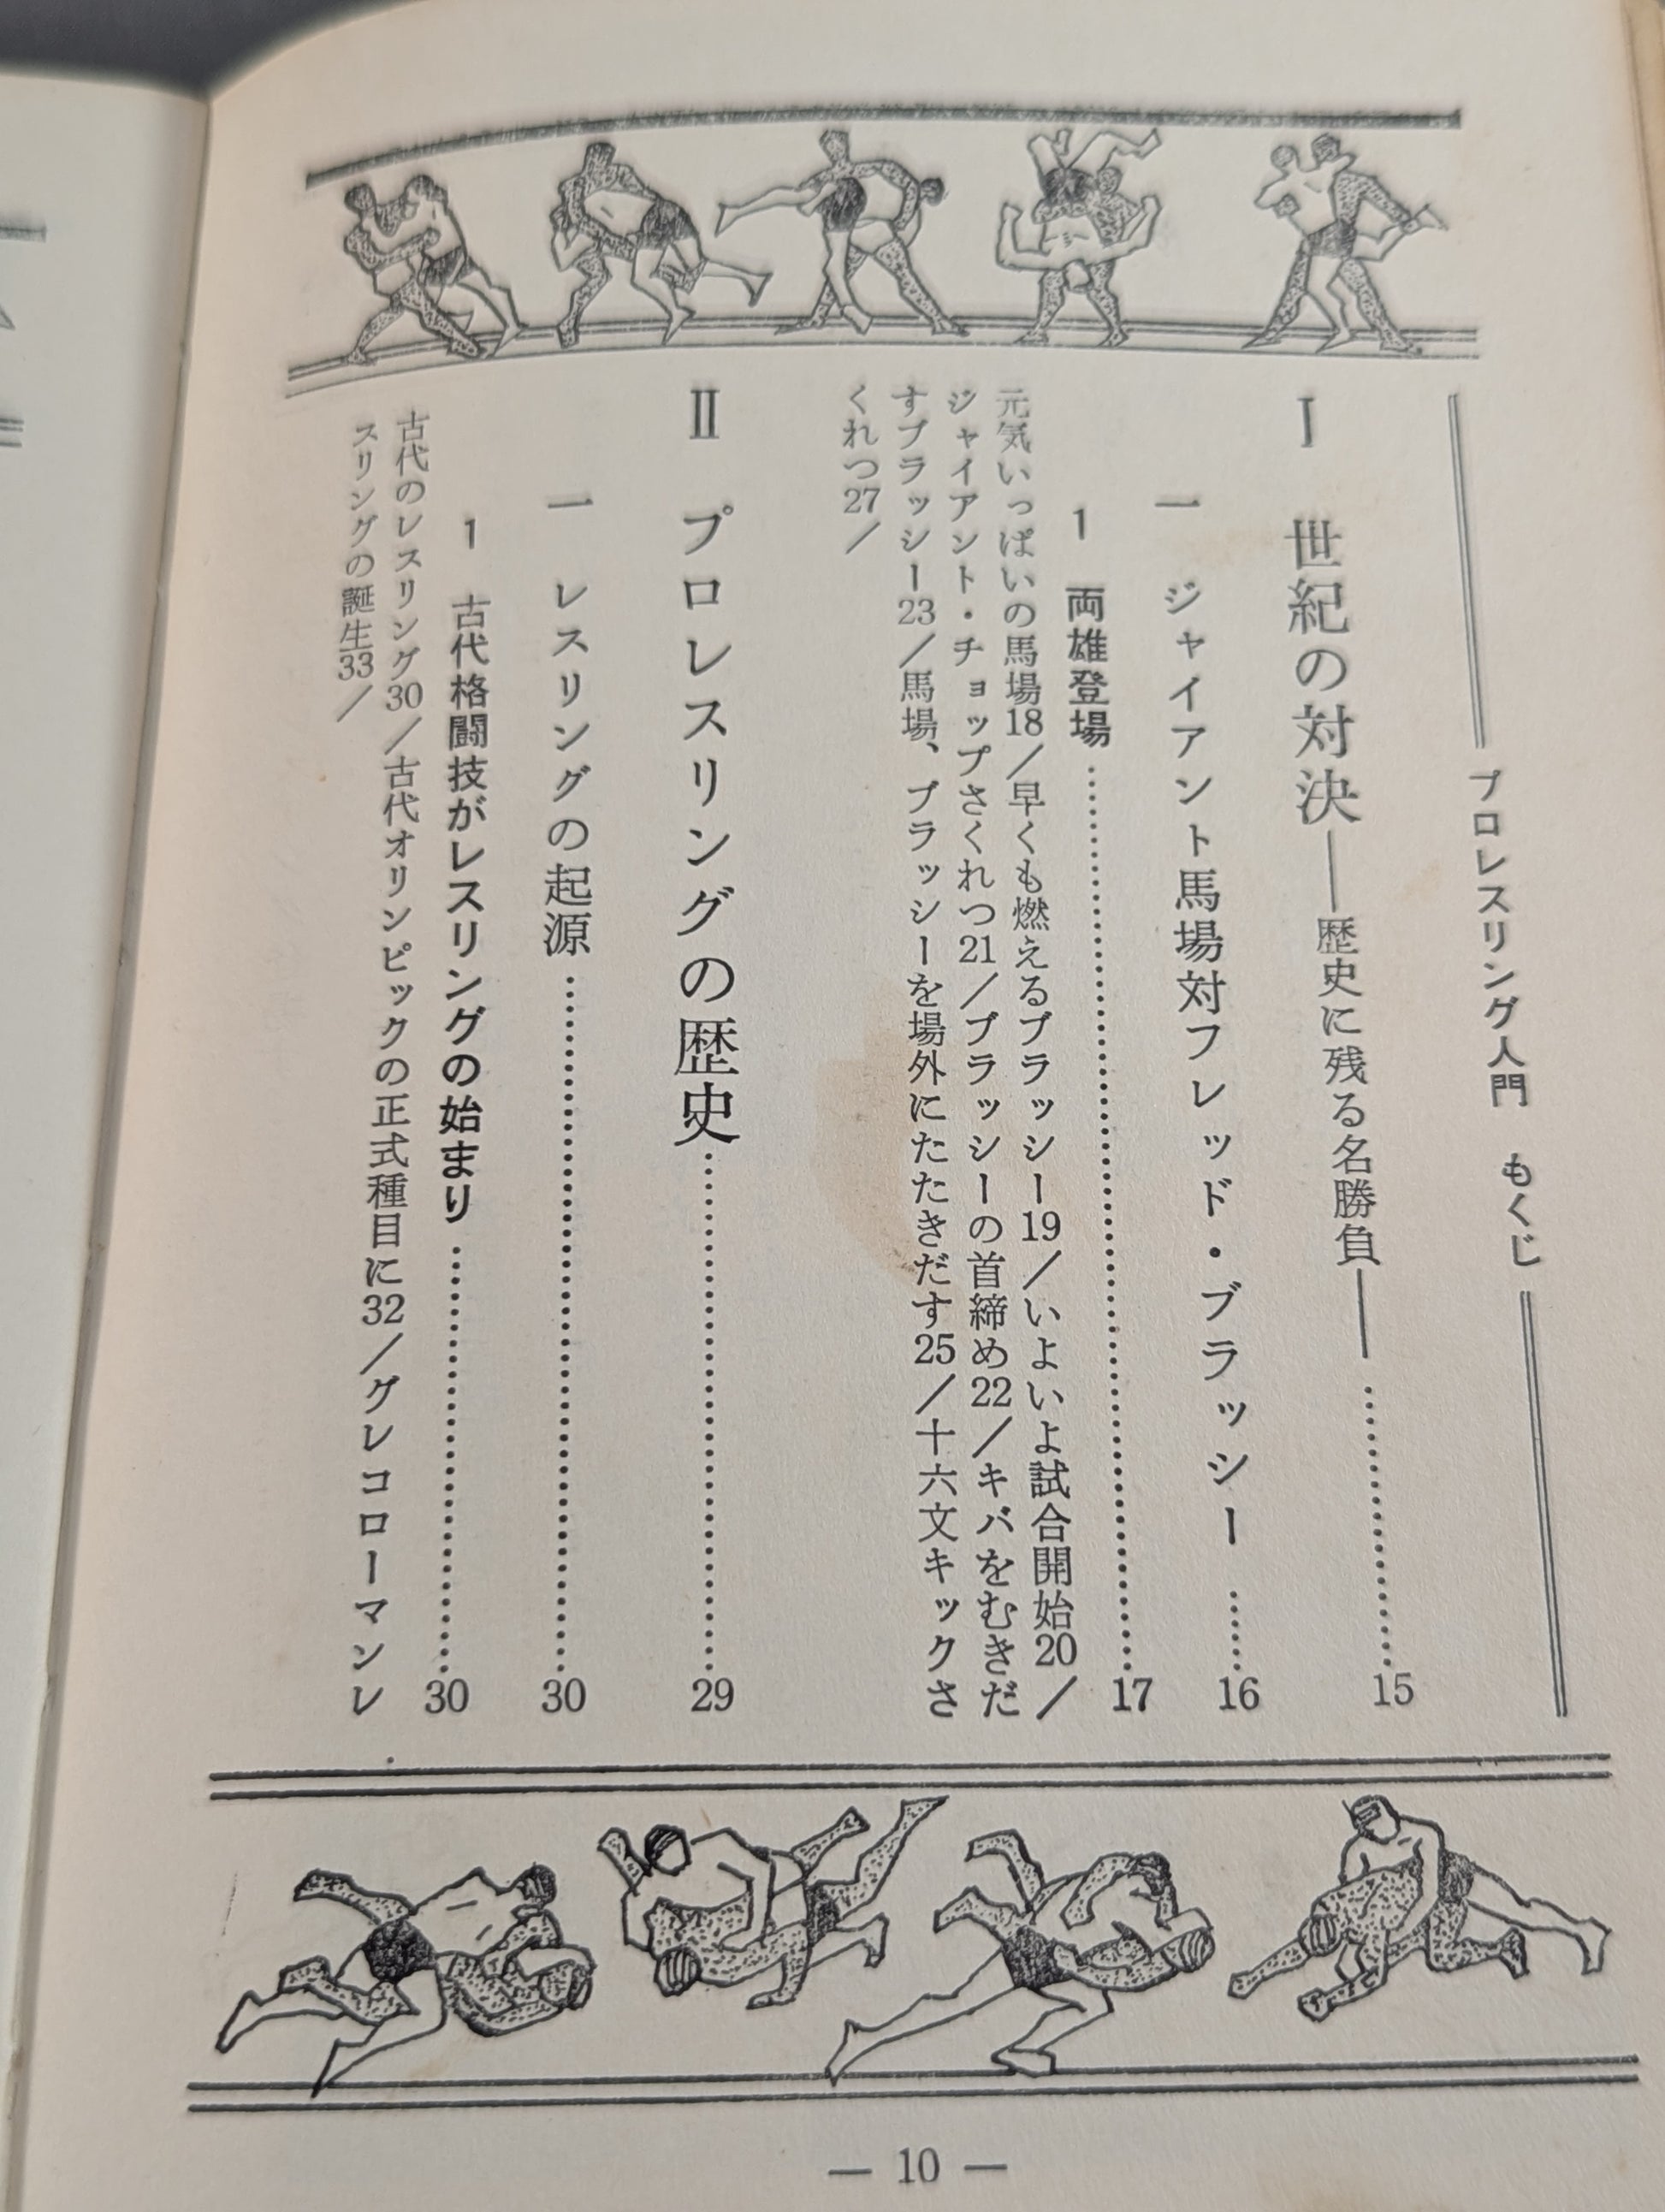 プロレスリング入門　もくじ
Ⅰ　世紀の対決――歴史に残る名勝負――……………15
一　ジャイアント馬場対フレッド・ブラッシー……16
1　両雄登場……………………………………17
元気いっぱいの馬場18／早くも燃えるブラッシー19／いよいよ試合開始20／
ジャイアント・チョップさくれつ21／ブラッシーの首締め22／キバをむきだ
すブラッシー23／馬場、ブラッシーを場外にたたきだす25／十六文キックさ
くれつ27／
Ⅱ　プロレスリングの歴史……………………29
一　レスリングの起源……………………………30
1　古代格闘技がレスリングの始まり………………30
古代のレスリング30／古代オリンピックの正式種目に32／グレコローマンレ
スリングの誕生33／
— 10 —